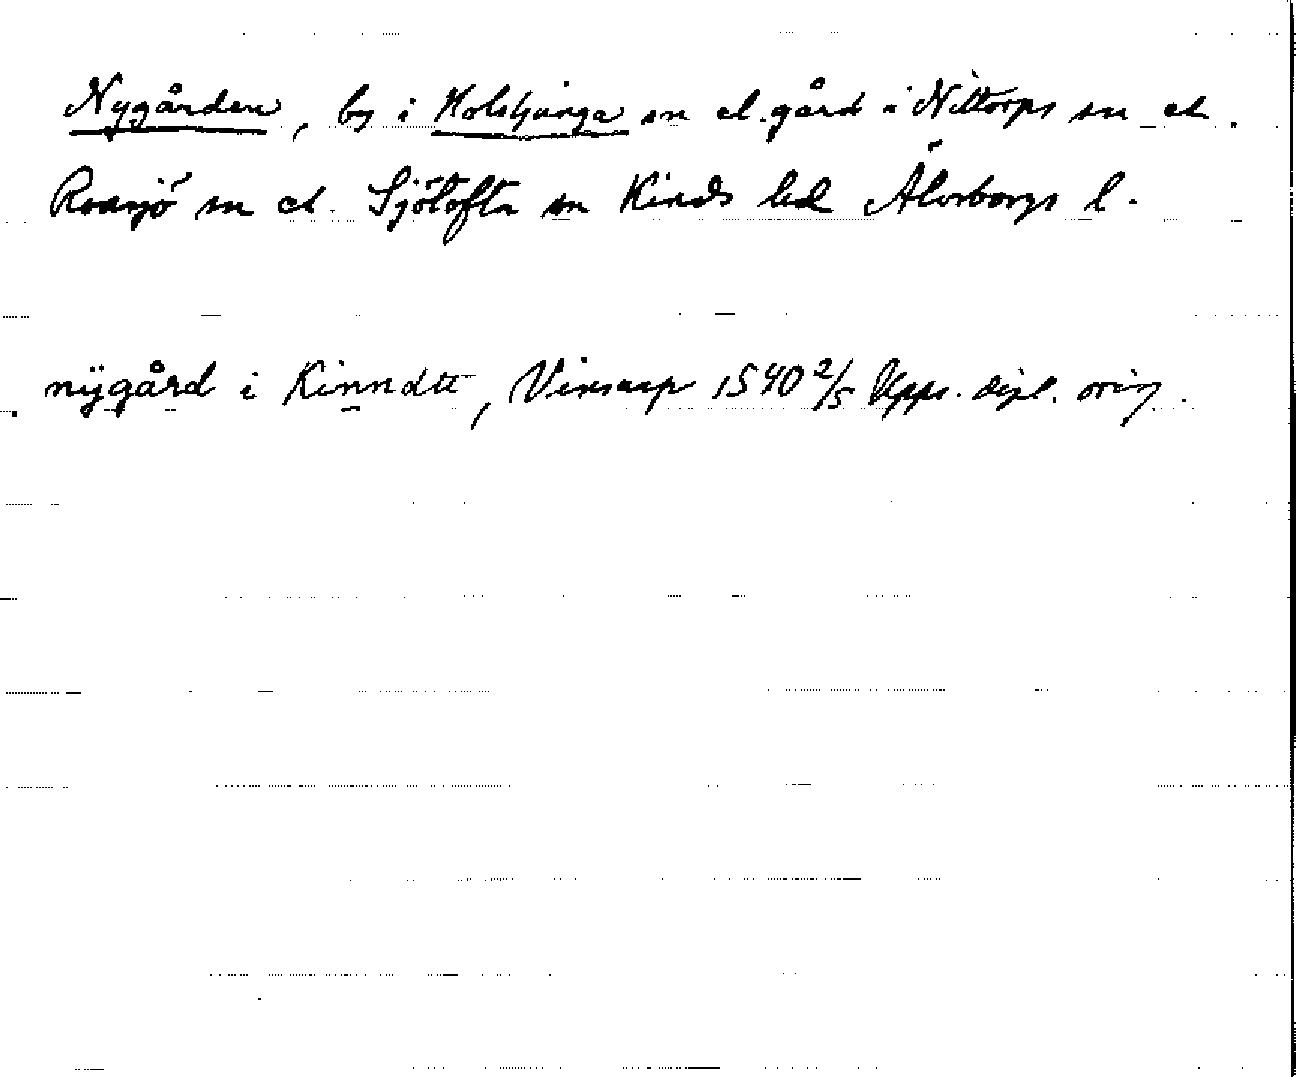 Nygården, by i Holsljunga sn el. gård i Nittorps sn el.
Roasjö sn el. Sjötofta sn Kinds hd Älvsborgs l.
nÿgård i Kinndtt, Vinsarp 1540 2/5 Upps. dipl. orig.